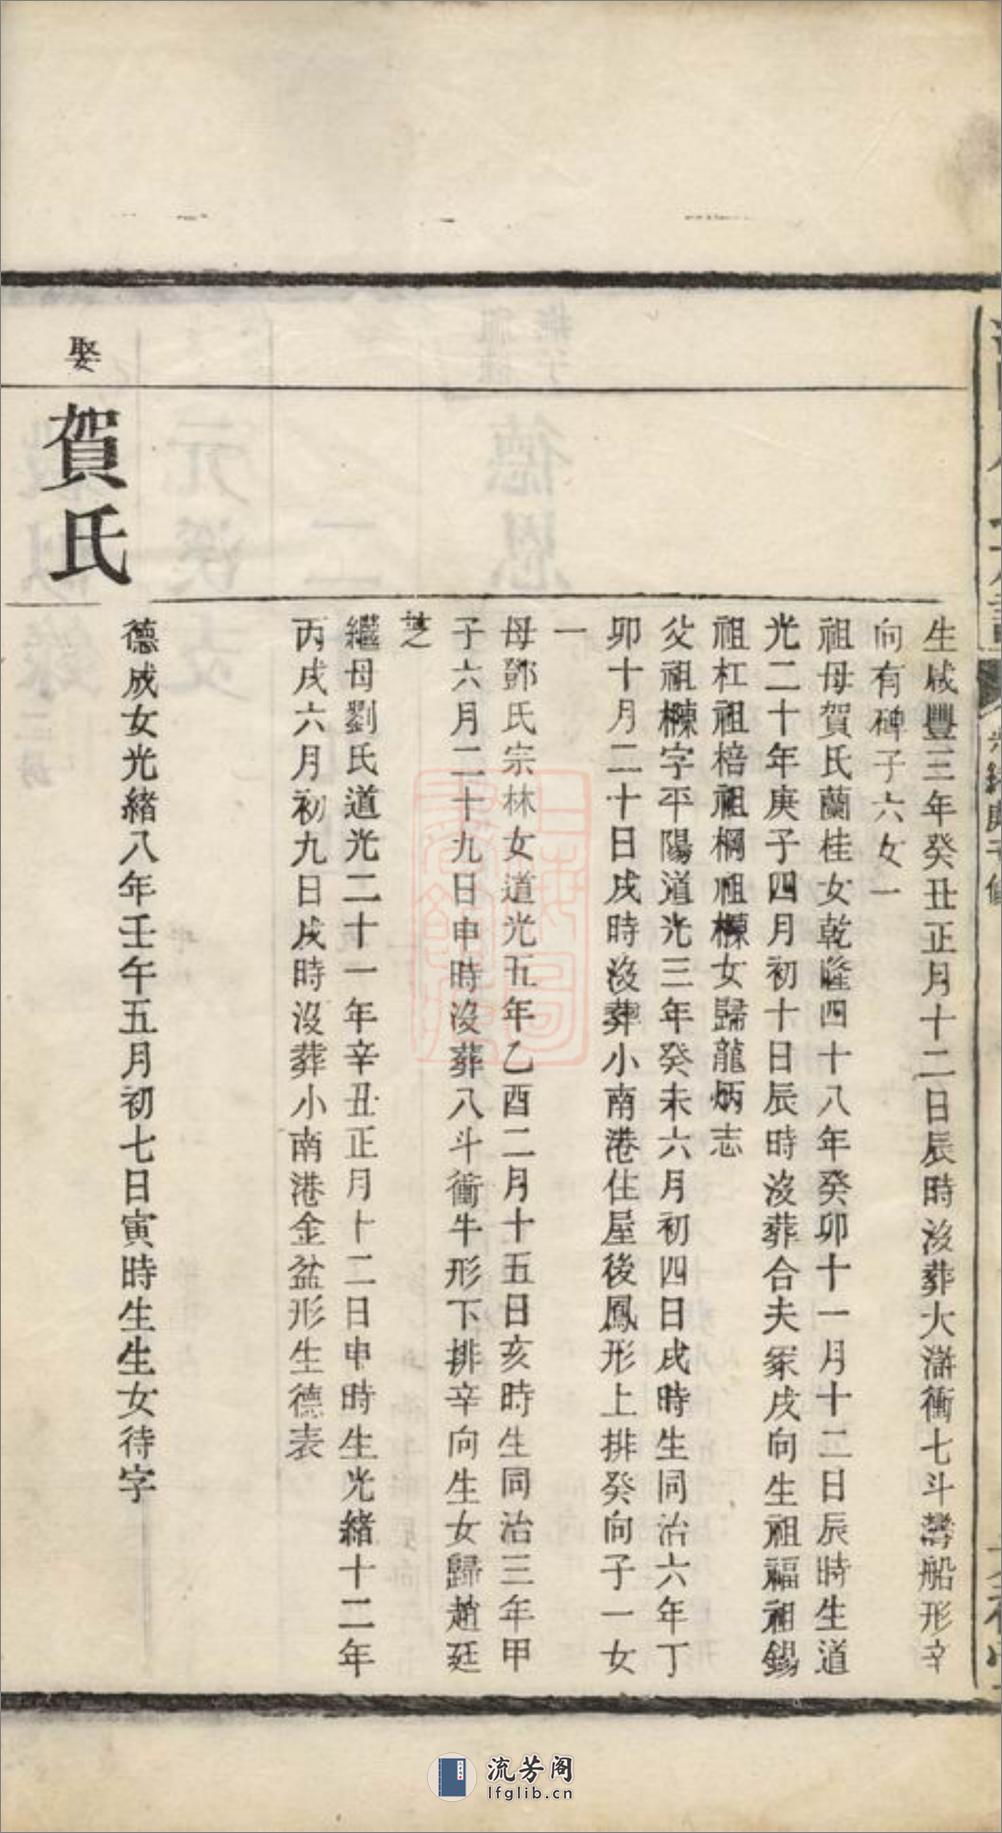 光緒庚子
生咸豐三年癸丑正月十二日辰時沒葬大滸衝七斗灣船形辛
向有碑子六女一
祖母賀氏蘭桂女乾隆四十八年癸卯十一月十二日辰時生道
光二十年庚子四月初十日辰時沒葬合夫冢戌向生祖福祖錫
祖杠祖棓祖棡祖欄女歸龍炳志
父祖欄字平陽道光三年癸未六月初四日戌時生同治六年丁
卯十月二十日戌時沒葬小南港住屋後鳳形上排癸向子一女
一
母鄧氏宗林女道光五年乙酉二月十五日亥時生同治三年甲
子六月二十九日申時沒葬八斗衝牛形下排辛向生女歸趙廷
繼母劉氏道光二十一年辛丑正月十二日申時生光緒十二年
丙戌六月初九日戌時沒葬小南港金盆形生德表
娶
賀氏
德成女光緒八年壬午五月初七日寅時生生女待字
流芳阁
lfglib.cn